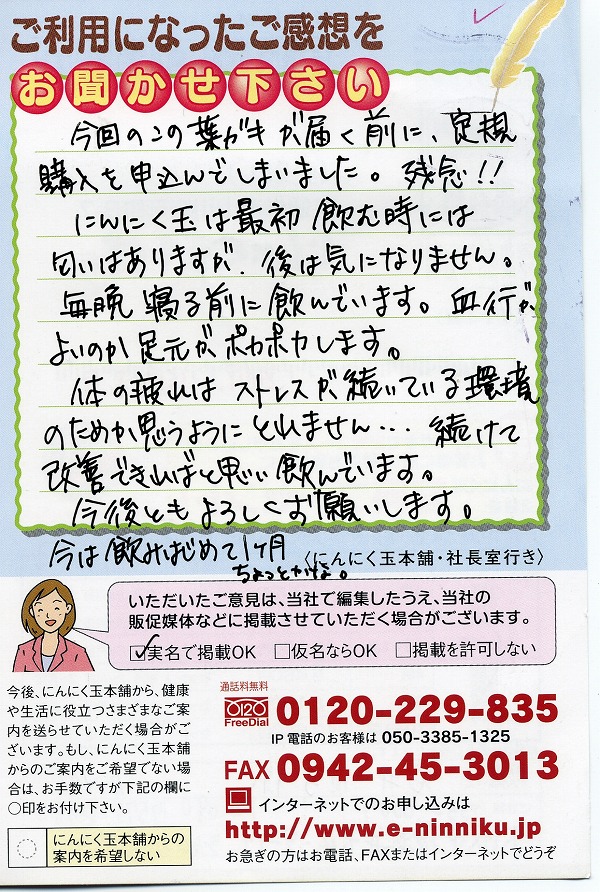 ご利用になったご感想を
お聞かせ下さい
今回のこの葉ガキが届く前に、定規
購入を申込んでしまいました。残念!!
にんにく玉は最初飲む時には
匂いはありますが、後は気になりません。
毎晩寝る前に飲んでいます。血行が
よいのか足元がポカポカします。
体の疲れはストレスが続いている環境
のためか思うようにとれません… 続けて
改善できればと思い飲んでいます。
今後ともよろしくお願いします。
今は飲みはじめて1ヶ月
ちょっとかな。
〈にんにく玉本舗・社長室行き〉
いただいたご意見は、当社で編集したうえ、当社の
販促媒体などに掲載させていただく場合がございます。
☑実名で掲載OK □仮名ならOK □掲載を許可しない
今後、にんにく玉本舗から、健康
や生活に役立つさまざまなご案
内を送らせていただく場合がご
ざいます。もし、にんにく玉本舗
からのご案内をご希望でない場
合は、お手数ですが下記の欄に
○印をお付け下さい。
にんにく玉本舗からの
案内を希望しない
通話料無料
0120
FreeDial
0120-229-835
IP電話のお客様は 050-3385-1325
FAX 0942-45-3013
インターネットでのお申し込みは
http://www.e-ninniku.jp
お急ぎの方はお電話、FAXまたはインターネットでどうぞ